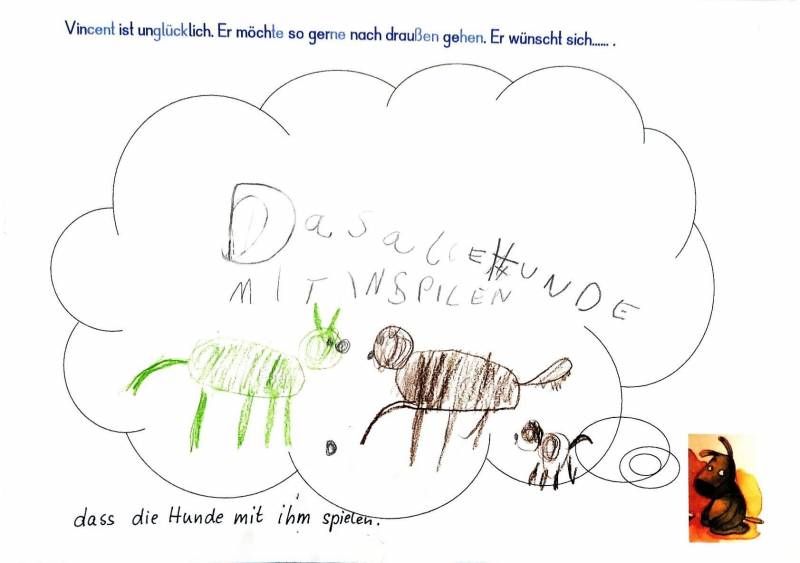 Vincent ist unglücklich. Er möchte so gerne nach draußen gehen. Er wünscht sich...... .
DasalleHUNDE
MITINSPILEN
dass die Hunde mit ihm spielen.